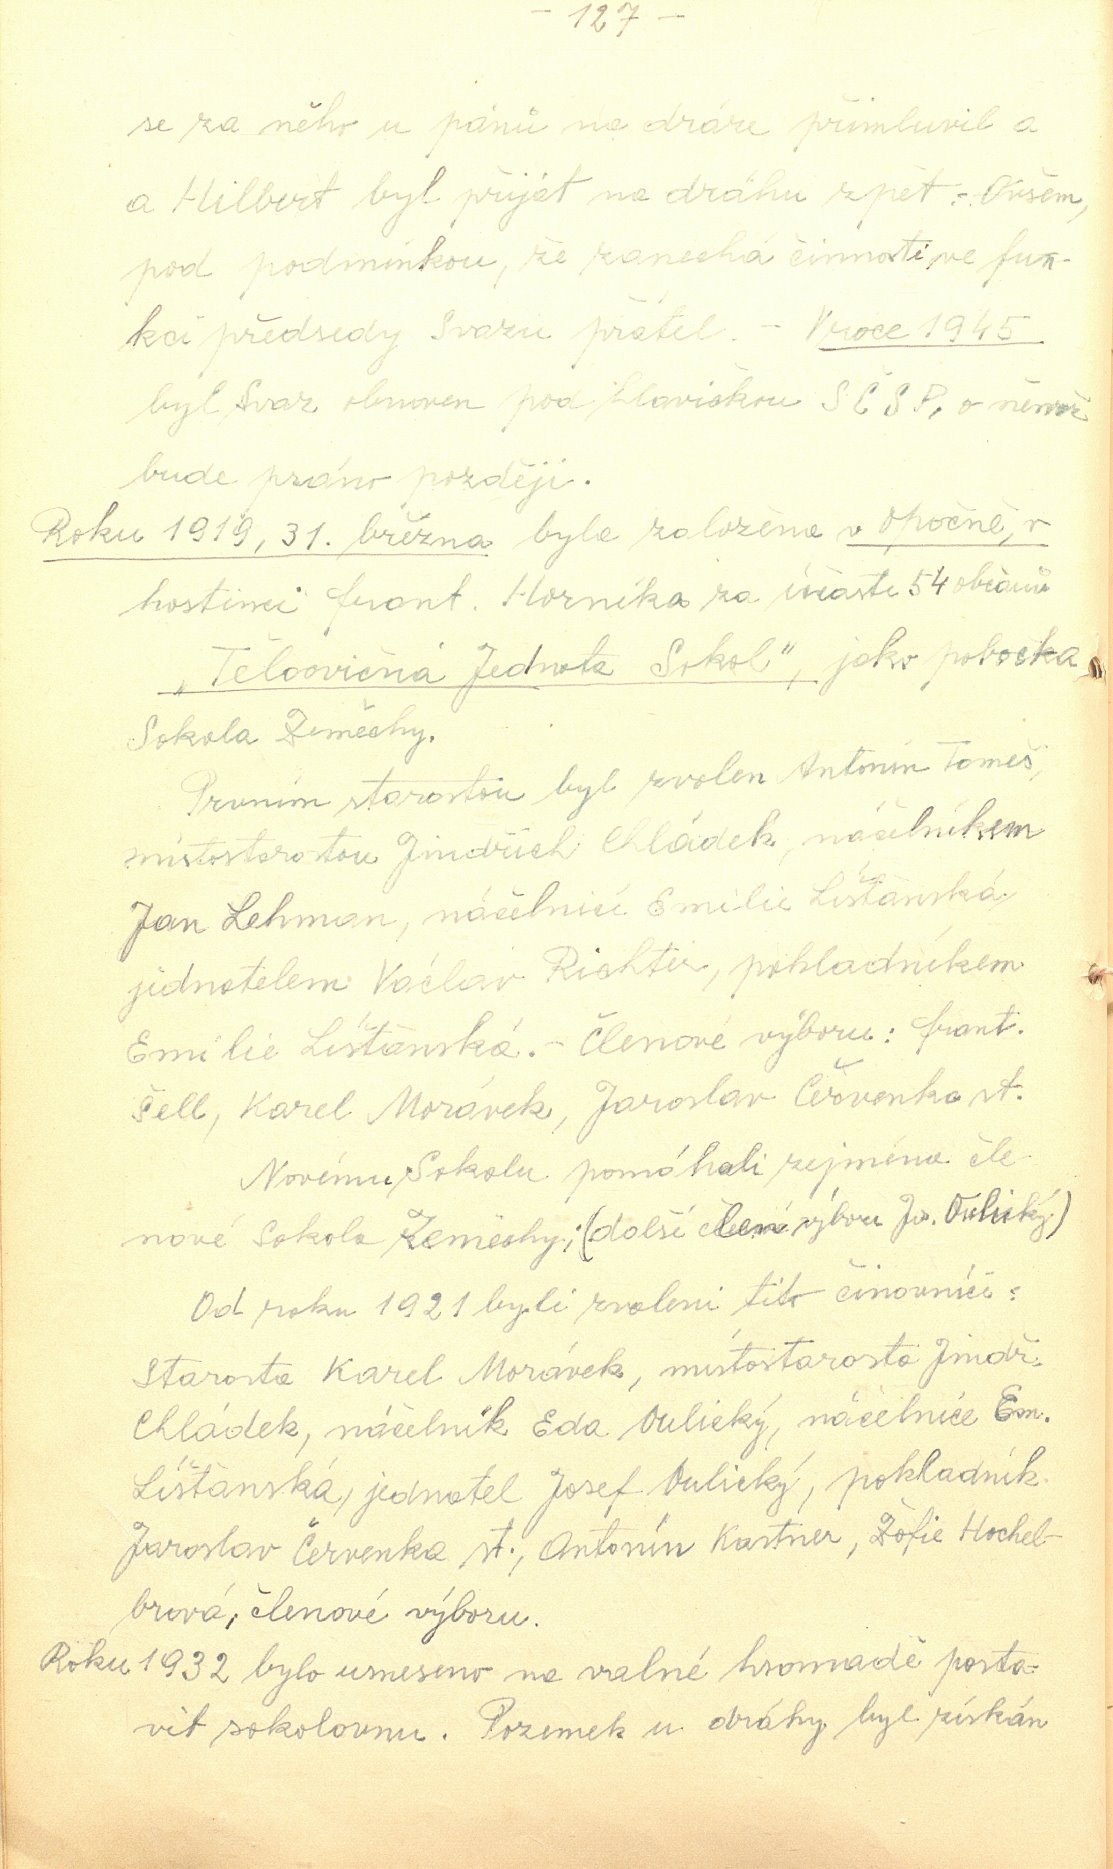 - 127 -
se za něho u pánů na dráze přimluvil a
a Hilbert byl přijat na dráhu zpět. - Ovšem,
pod podmínkou, že zanechá činnosti ve fun-
kci předsedy Svazu přátel. - V roce 1945
byl Svaz obnoven pod hlavičkou SČSP, o němž
bude psáno později.
Roku 1919, 31. března byla založena v Opočně, v
hostinci frant. Horníka za účasti 54 občanů
„Tělocvičná Jednota Sokol", jako pobočka
Sokola Zeměchy.
Prvním starostou byl zvolen Antonín Tomeš,
místostarostou Jindřich Chládek, náčelníkem
Jan Lehman, náčelnicí Emilie Líšťanská
jednatelem Václav Richter, pokladníkem
Emilie Líšťanská. - Členové výboru: frant.
Šell, Karel Morávek, Jaroslav Červenka st.
Novému Sokolu pomáhali zejména čle-
nové Sokola Zeměchy; (další člen výboru Jos. Oulický)
Od roku 1921 byli zvoleni tito činovníci:
Starosta Karel Morávek, místostarosta Jindř.
Chládek, náčelník Eda Oulický, náčelnice Em.
Líšťanská, jednatel Josef Oulický, pokladník
Jaroslav Červenka st., Antonín Kastner, Žofie Hochel-
brová, členové výboru.
Roku 1932 bylo usneseno na valné hromadě posta-
vit sokolovnu. Pozemek u dráhy byl získán